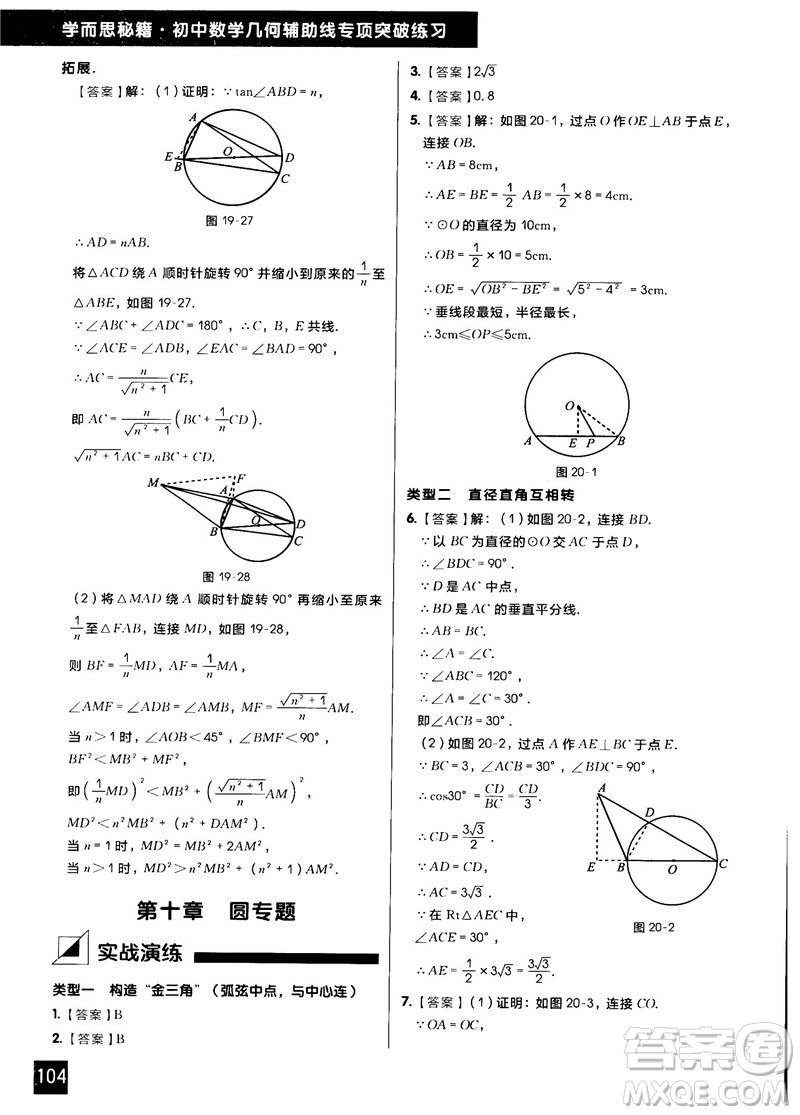 学而思秘籍·初中数学几何辅助线专项突破练习
拓展.
【答案】解:(1)证明:∵tan∠ABD=n,
A
O
E
B
D
C
图 19-27
∴AD=nAB.
将△ACD绕A顺时针旋转90°并缩小到原来的1/n至
△ABE,如图19-27.
∵∠ABC+∠ADC=180°,∴C,B,E共线.
∵∠ACE=∠ADB,∠CAE=∠BAD=90°,
∴AC=n/√(n²+1) CE,
即 AC=n/√(n²+1)(BC+1/n CD)
√(n²+1)AC=nBC+CD.
M
F
A
O
B
D
C
图 19-28
(2)将△MAD绕A顺时针旋转90°再缩小到原来
1/n至△FAB,连接MD,如图19-28,
则 BF=1/n MD,AF=1/n MA,
∠AMF=∠ABD=∠AMB,MF=√(n²+1)/n AM.
当n>1时,∠AOB<45°,∠BMF<90°,
BF²<MB²+MF²,
即(1/n MD)²<MB²+(√(n²+1)/n AM)²
MD²<n²MB²+(n²+1)AM².
当n=1时,MD²=MB²+2AM²,
当n<1时,MD²>n²MB²+(n²+1)AM².
第十章 圆专题
实战演练
类型一 构造“金三角”(弧弦中点,与中心连)
1.【答案】B
2.【答案】B
104
3.【答案】2√3
4.【答案】0.8
5.【答案】解:如图20-1,过点O作OE⊥AB于点E,
连接OB.
∵AB=8cm,
∴AE=BE=1/2 AB=1/2×8=4cm.
∵⊙O的直径为10cm,
∴OB=1/2×10=5cm.
∴OE=√(OB²-BE²)=√(5²-4²)=3cm.
∵垂线段最短,半径最长,
∴3cm≤OP≤5cm.
O
A
E P
B
图 20-1
类型二 直径直角互相转
6.【答案】解:(1)如图20-2,连接BD.
∵以BC为直径的⊙O交AC于点D,
∴∠BDC=90°.
∵D是AC中点,
∴BD是AC的垂直平分线.
∴AB=BC.
∴∠A=∠C.
∵∠ABC=120°,
∴∠A=∠C=30°.
即∠ACB=30°.
(2)如图20-2,过点A作AE⊥BC于点E.
∵BC=3,∠ACB=30°,∠BDC=90°,
∴cos30°=CD/BC=CD/3.
∴CD=3√3/2.
∵AD=CD,
∴AC=3√3.
∵在Rt△AEC中,
∠ACE=30°,
∴AE=1/2×3√3=3√3/2.
A
D
E
B
O
C
图 20-2
7.【答案】(1)证明:如图20-3,连接CO.
∵OA=OC,
答案圈
MXQE.COM